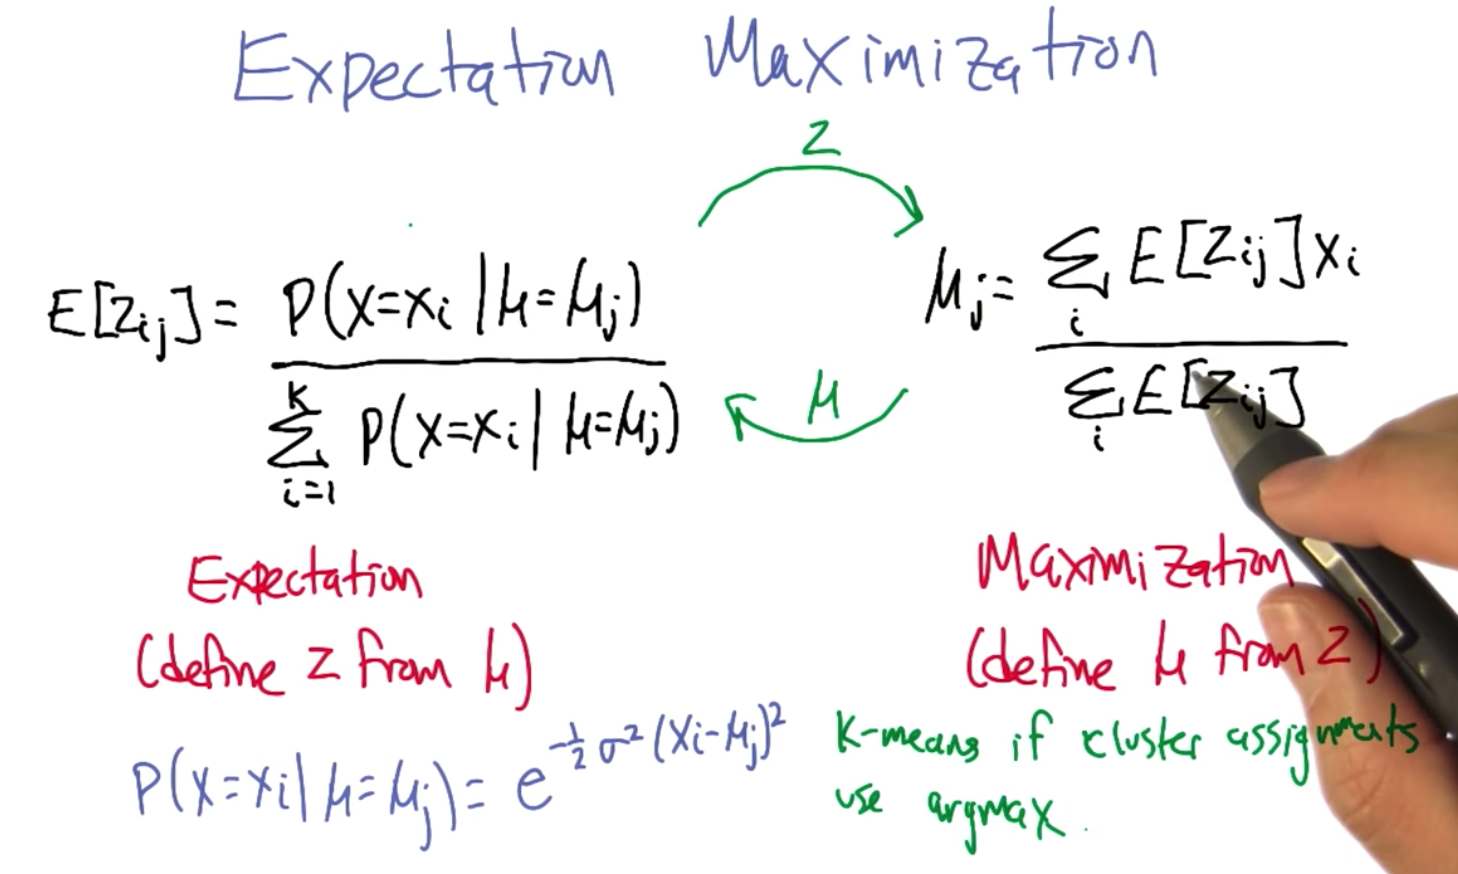 Expectation Maximization
z
E[z_ij] = P(x=x_i | μ=μ_j) / Σ_{i=1}^{K} P(x=x_i | μ=μ_j)
μ_j = Σ_i E[z_ij] x_i / Σ_i E[z_ij]
μ
Expectation
(define z from μ)
Maximization
(define μ from z)
P(x=x_i | μ=μ_j) = e^{-1/2 σ^2 (x_i-μ_j)^2}
K-means if cluster assignments
use argmax.